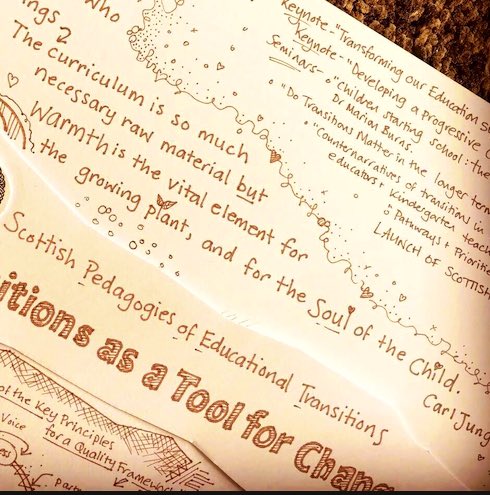 who
ings ?
The curriculum is so much
necessary raw material but
warmth is the vital element for
the growing plant, and for the Soul of the Child.
Carl Jung
Keynote - "Transforming our Education
Keynote - "Developing a progressive
Seminars - "Children starting school: the
Dr Marian Burns.
"Do Transitions Matter in the longer term
"Counternarratives of transitions in
educators + Kindergarten teach
"Pathways + Priorities
LAUNCH OF SCOTTISH
Scottish Pedagogies of Educational Transitions
itions as a Tool for Chang
of the Key Principles
for a Quality Framework
Voice